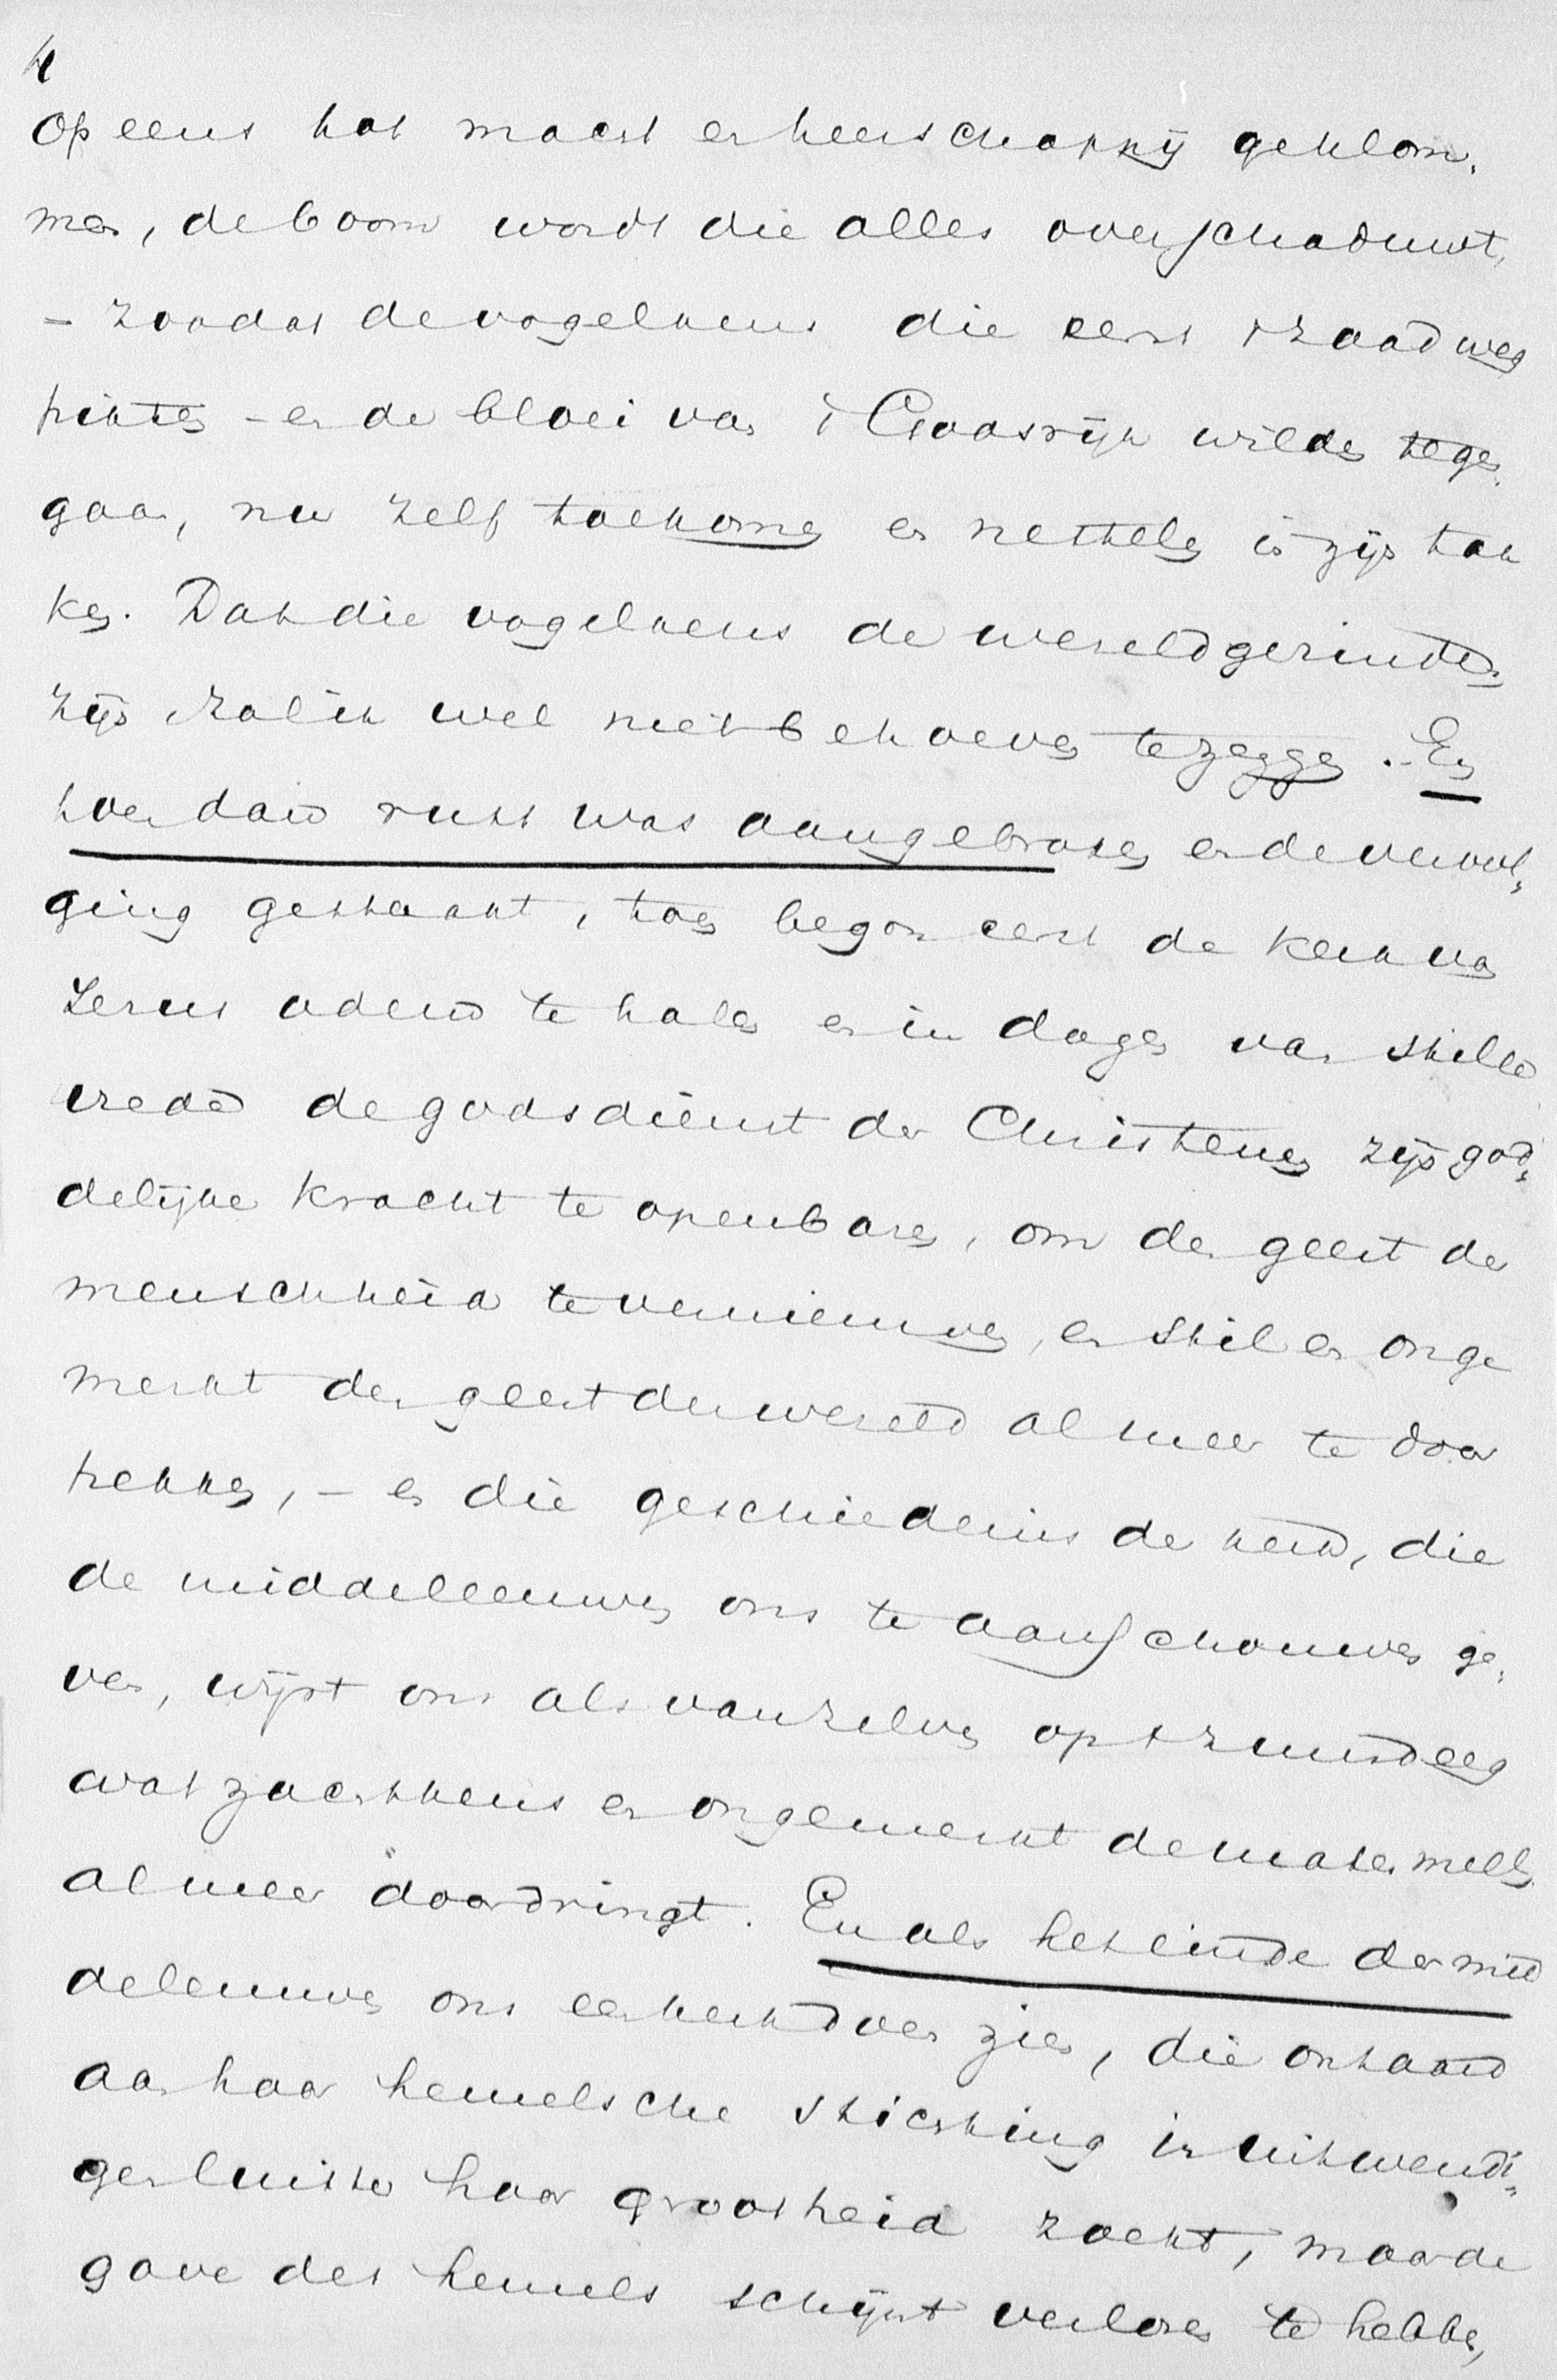 4
Opeens tot macht en heerschappij geklom,
men, de boom wordt die alles overschaduwt,
– zoodat de vogelkens die eerst 't zaad weg
pikten – en de bloei van 't Godsrijk wilden tegen
gaan, nu zelf toekomen en nestelen in zijn tak
ken. Dat die vogelkens de wereldgezinden
zijn zal ik wel niet behoeven te zeggen. – En
toen daar rust was aangebroken en de vervol,
ging gestaakt, toen begon eerst de kerk van
Jezus adem te halen en in dagen van stille
vrede de godsdienst der Christenen zijn god,
delijke kracht te openbaren, om den geest der
menschheid te vernieuwen, en stil en onge
merkt den geest der wereld al meer te door
trekken, – en die geschiedenis der kerk, die
de middeleeuwen ons te aanschouwen ge,
ven, wijst ons als vanzelven op 't zuurdeeg
wat zachtkens en ongemerkt de maten meels
al meer doordringt. En als het einde der mid
deleeuwen ons een kerk doen zien, die ontaard
aan haar hemelsche stichting in uitwendi,
gen luister haar grootheid zoekt, maar de
gave des hemels schijnt verloren te hebben,